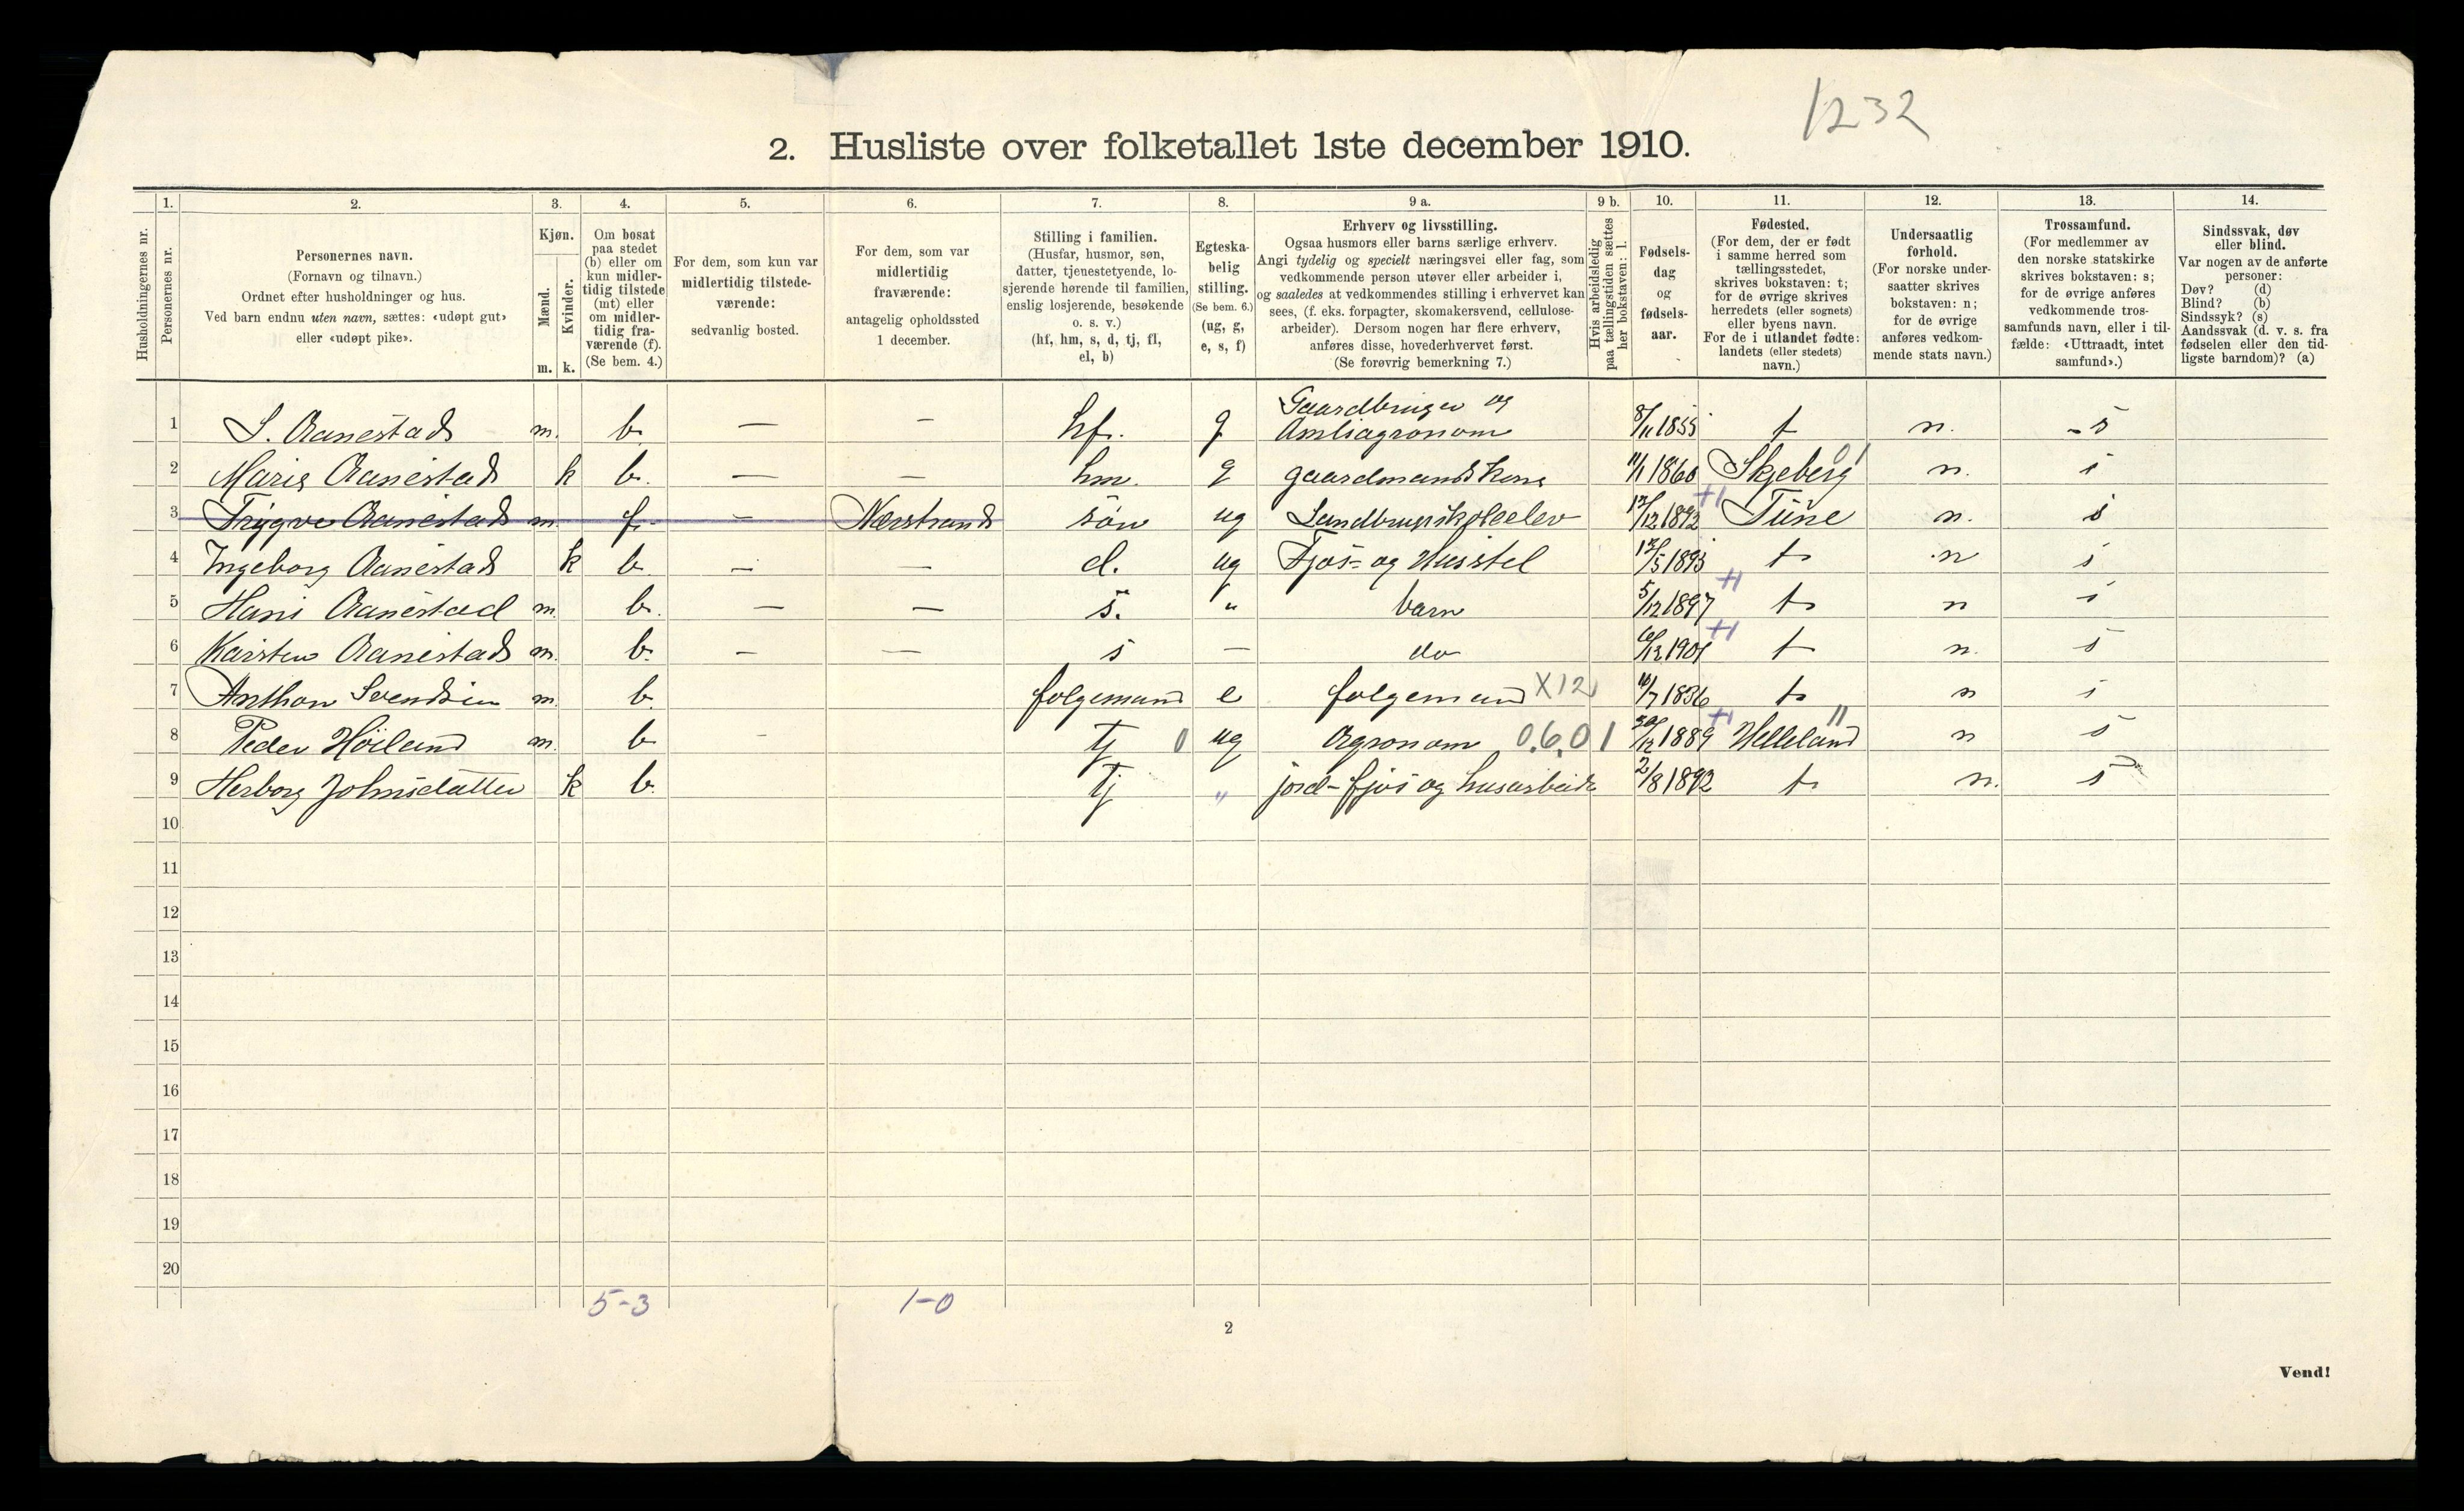 1232
2. Husliste over folketallet 1ste december 1910.
1. 2. 3. 4. 5. 6. 7. 8. 9 a. 9 b. 10. 11. 12. 13. 14.
Husholdningernes nr.
Personernes nr.
Personernes navn.
(Fornavn og tilnavn.)
Ordnet efter husholdninger og hus.
Ved barn endnu uten navn, sættes: «udøpt gut»
eller «udøpt pike».
Kjøn.
Mænd.
Kvinder.
m. k.
Om bosat
paa stedet
(b) eller om
kun midler-
tidig tilstede
(mt) eller
om midler-
tidig fra-
værende (f).
(Se bem. 4.)
For dem, som kun var
midlertidig tilstede-
værende:
sedvanlig bosted.
For dem, som var
midlertidig
fraværende:
antagelig opholdssted
1 december.
Stilling i familien.
(Husfar, husmor, søn,
datter, tjenestetyende, lo-
sjerende hørende til familien,
enslig losjerende, besøkende
o. s. v.)
(hf, hm, s, d, tj, fl,
el, b)
Egteska-
belig
stilling.
(Se bem. 6.)
(ug, g,
e, s, f)
Erhverv og livsstilling.
Ogsaa husmors eller barns særlige erhverv.
Angi tydelig og specielt næringsvei eller fag, som
vedkommende person utøver eller arbeider i,
og saaledes at vedkommendes stilling i erhvervet kan
sees, (f. eks. forpagter, skomakersvend, cellulose-
arbeider). Dersom nogen har flere erhverv,
anføres disse, hovederhvervet først.
(Se forøvrig bemerkning 7.)
Hvis arbeidsledig
paa tællingstiden sættes
her bokstaven: l.
Fødsels-
dag
og
fødsels-
aar.
Fødested.
(For dem, der er født
i samme herred som
tællingsstedet,
skrives bokstaven: t;
for de øvrige skrives
herredets (eller sognets)
eller byens navn.
For de i utlandet fødte:
landets (eller stedets)
navn.)
Undersaatlig
forhold.
(For norske under-
saatter skrives
bokstaven: n;
for de øvrige
anføres vedkom-
mende stats navn.)
Trossamfund.
(For medlemmer av
den norske statskirke
skrives bokstaven: s;
for de øvrige anføres
vedkommende tros-
samfunds navn, eller i til-
fælde: «Uttraadt, intet
samfund».)
Sindssvak, døv
eller blind.
Var nogen av de anførte
personer:
Døv? (d)
Blind? (b)
Sindssyk? (s)
Aandssvak (d. v. s. fra
fødselen eller den tid-
ligste barndom)? (a)
Gaardbruger og
1 S. Aanestad m. b. — — hf. g Amtsagronom 8/11 1855 t n. s
2 Marie Aanestad k b. — — hm. g gaardmandskone 11/1 1860 Skjeberg n. s
3 Trygve Aanestad m. f. — Nærstrand søn ug Landbrugsskoleelev 17/12 1892 +1 Tune n. s
4 Ingeborg Aanestad k b — — d. ug Fjøs- og Husstel 17/5 1895 t n s
5 Hans Aanestad m. b. — — s. " barn 5/12 1897 +1 t n s
6 Karsten Aanestad m. b. — — s — do 6/12 1901 +1 t n. s
7 Anthon Svendsen m. b. folgemand e folgemand X12 10/7 1836 t n s
8 Peder Höiland m. b - tj 0 ug Agronom 0.6.01 30/12 1889 +1 Helleland 11 n s
9 Herborg Johnsdatter k b. tj " jord- fjøs og husarbeide 2/8 1892 t n. s
10
11
12
13
14
15
16
17
18
19
20
5-3 1-0
2
Vend!